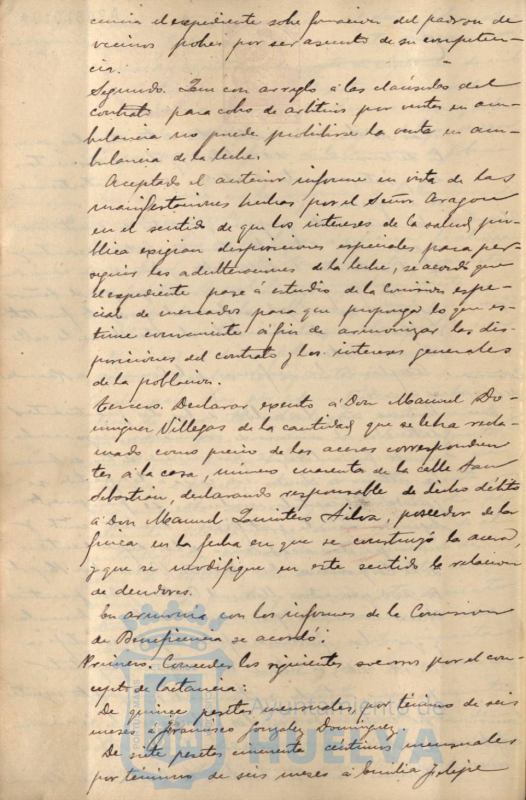 cuencia el expediente sobre formacion del padron de
vecinos pobres por ser asunto de su competen-
cia.
Segundo. Que con arreglo á las cláusulas del
contrato para cobro de arbitrios por ventas en am-
bulancia no puede prohibirse la venta en am-
bulancia de la leche.
Aceptado el anterior informe en vista de las
manifestaciones hechas por el Señor Aragon
en el sentido de que los intereses de la salud pú-
blica exigian disposiciones especiales para per-
seguir las adulteraciones de la leche, se acordó que
el expediente pase á estudio de la Comision espe-
cial de mercados para que proponga lo que es-
time conveniente á fin de armonizar las dis-
posiciones del contrato y los intereses generales
de la poblacion.
Tercero. Declarar exento á Don Manuel Do-
minguez Villegas de la cantidad que se le ha recla-
mado como precio de las aceras correspondien-
tes á la casa, número cuarenta de la calle San
Sebastian, declarando responsable de dicho débito
á Don Manuel Quintero Silva, poseedor de la
finca en la fecha en que se construyó la acera,
y que se modifique en este sentido la relacion
de deudores.
En armonia con los informes de la Comision
de Beneficencia se acordó:
Primero. Conceder los siguientes socorros por el con-
cepto de lactancia:
De quince pesetas mensuales, por término de seis
meses á Francisco Gonzalez Dominguez.
De siete pesetas cincuenta céntimos mensuales
por término de seis meses á Emilia Felipe
Ayuntamiento de
HUELVA